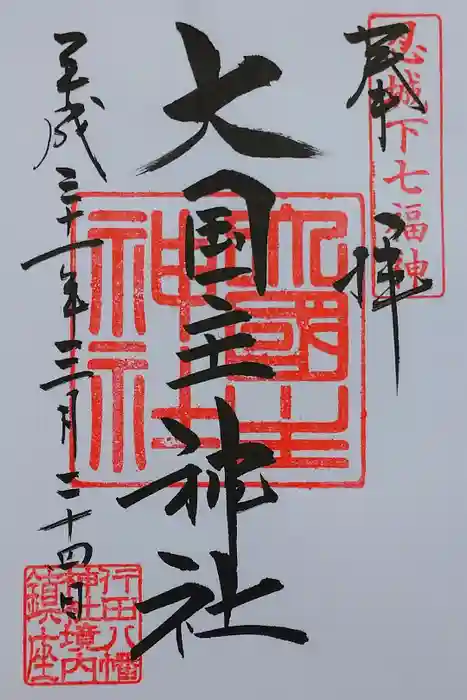 忍城下七福神
奉拝
大国主神社
大國主
平成三十一年三月二十四日
行田八幡
神社境内
鎮座